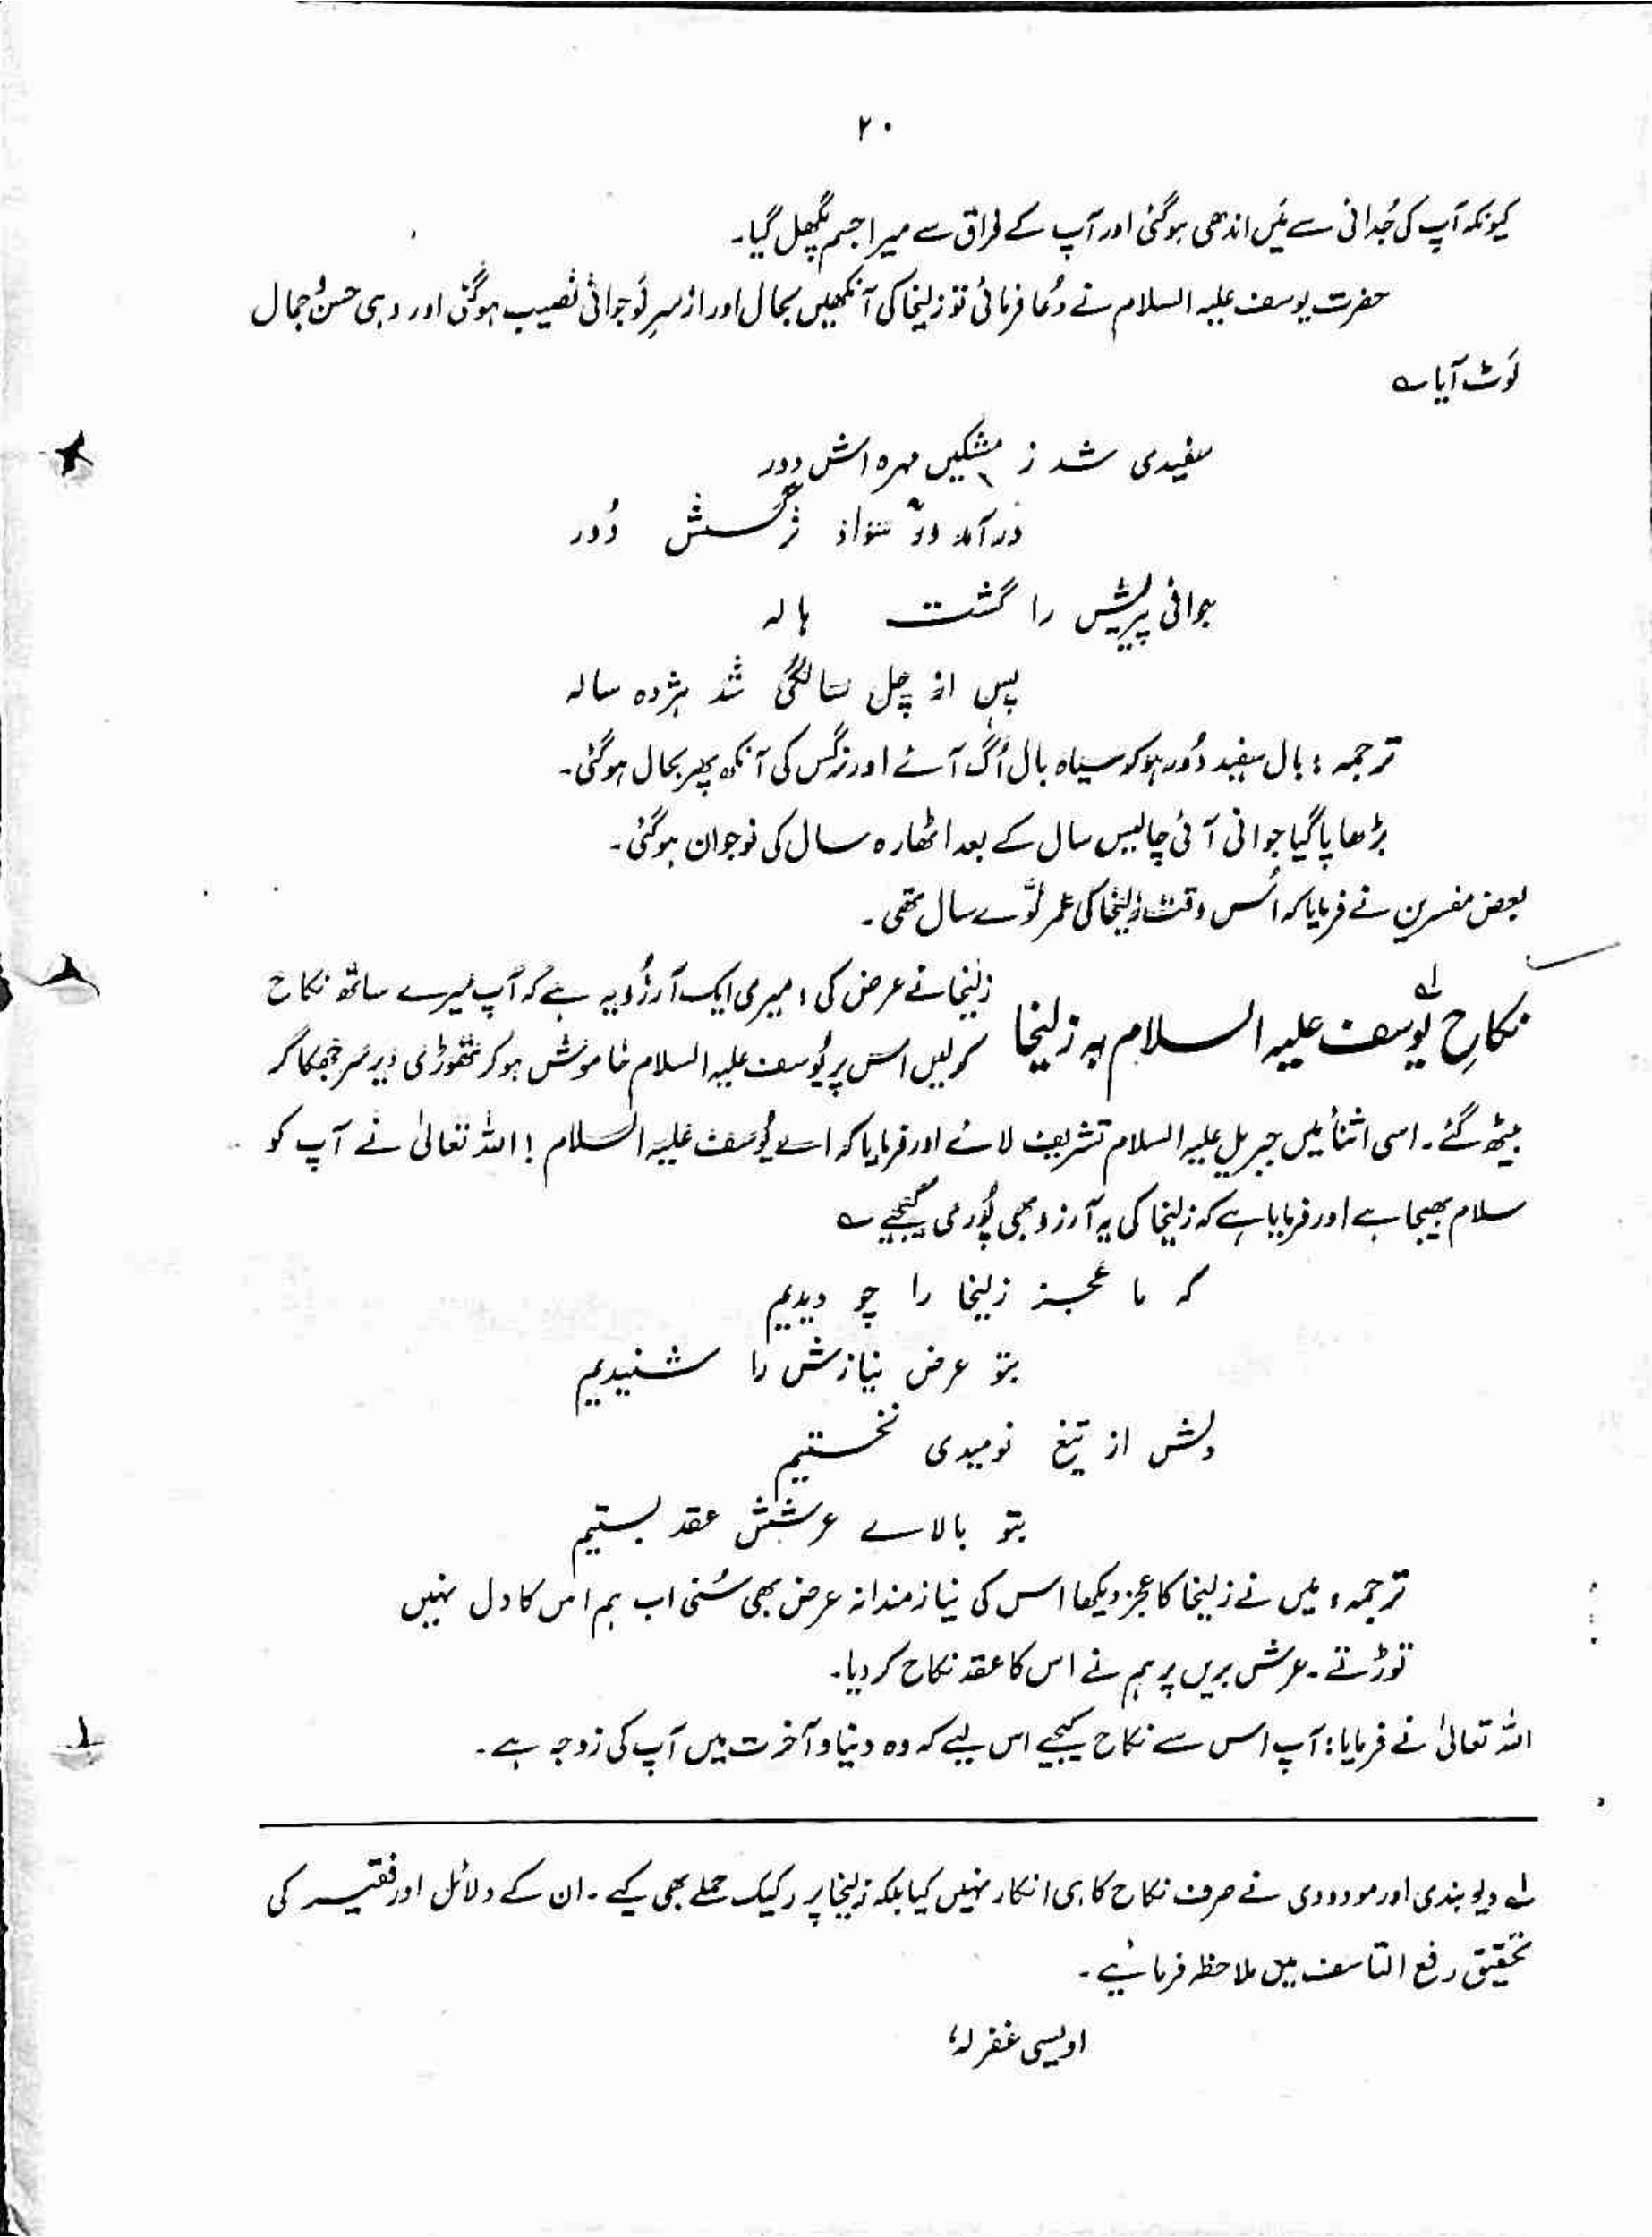 ۲۰
کیونکہ آپ کی جُدائی سے مَیں اندھی ہوگئی اور آپ کے فراق سے میرا جسم پگھل گیا۔
حضرت یوسف علیہ السلام نے دُعا فرمائی تو زلیخا کی آنکھیں بحال اور ازسرِ نَو جوانی نصیب ہوگئی اور وہی حسن و جمال
لَوٹ آیا ؎
سفیدی شد ز مشکیں مہرہ اش دور
در آمد در سواد نرگسش دُور
جوانی پیریش را گشت ہالہ
پس از چل سالگی شد ہژدہ سالہ
ترجمہ : بال سفید دُور ہوکر سیاہ بال اُگ آئے اور نرگس کی آنکھ پھر بحال ہوگئی۔
بڑھاپا گیا جوانی آئی چالیس سال کے بعد اٹھارہ سال کی نوجوان ہوگئی۔
بعض مفسرین نے فرمایا کہ اُس وقت زلیخا کی عمر نوّے سال تھی۔
نکاحِ یُوسف علیہ السلام بہ زلیخا لہ زلیخا نے عرض کی : میری ایک آرزُو یہ ہے کہ آپ میرے ساتھ نکاح
کرلیں اس پر یُوسف علیہ السلام خاموش ہوکر تھوڑی دیر سر جھکا کر
بیٹھ گئے۔ اسی اثنأ میں جبریل علیہ السلام تشریف لائے اور فرمایا کہ اے یُوسف علیہ السلام ! اللہ تعالیٰ نے آپ کو
سلام بھیجا ہے اور فرمایا ہے کہ زلیخا کی یہ آرزو بھی پُوری کیجیے ؎
کہ ما عجز زلیخا را چو دیدیم
بتو عرض نیازش را شنیدیم
دلش از تیغ نومیدی نخستیم
بتو بالاے عرشش عقد بستیم
ترجمہ : میں نے زلیخا کا عجز دیکھا اس کی نیازمندانہ عرض بھی سُنی اب ہم اس کا دل نہیں
توڑتے۔ عرش بریں پر ہم نے اس کا عقد نکاح کردیا۔
اللہ تعالیٰ نے فرمایا : آپ اس سے نکاح کیجیے اس لیے کہ وہ دنیا و آخرت میں آپ کی زوجہ ہے۔
لہ دیوبندی اور مودودی نے صرف نکاح کا ہی انکار نہیں کیا بلکہ زلیخا پر رکیک حملے بھی کیے۔ ان کے دلائل اور فقیر کی
تحقیق رفع التاسف میں ملاحظہ فرمائیے۔
اویسی غفرلہٗ